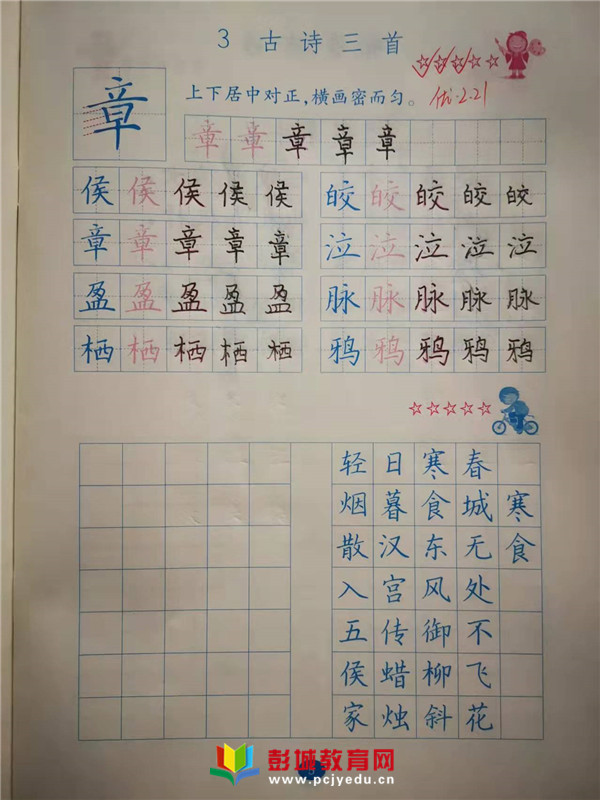 3 古诗三首
章
上下居中对正,横画密而匀。
优·2.21
章章章章章
侯侯侯侯侯
皎皎皎皎皎
章章章章章
泣泣泣泣泣
盈盈盈盈盈
脉脉脉脉脉
栖栖栖栖栖
鸦鸦鸦鸦鸦
寒食
春城无处不飞花
寒食东风御柳斜
日暮汉宫传蜡烛
轻烟散入五侯家
彭城教育网
www.pcjyedu.cn